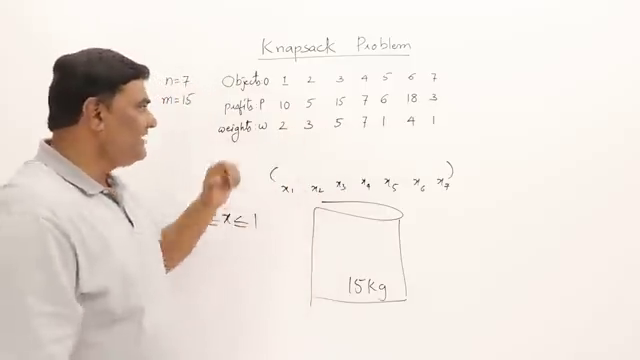 Knapsack Problem
n=7 Objects:O 1 2 3 4 5 6 7
m=15 profits P 10 5 15 7 6 18 3
weights: w 2 3 5 7 1 4 1
( x₁ x₂ x₃ x₄ x₅ x₆ x₇ )
≤ x ≤ 1
15kg